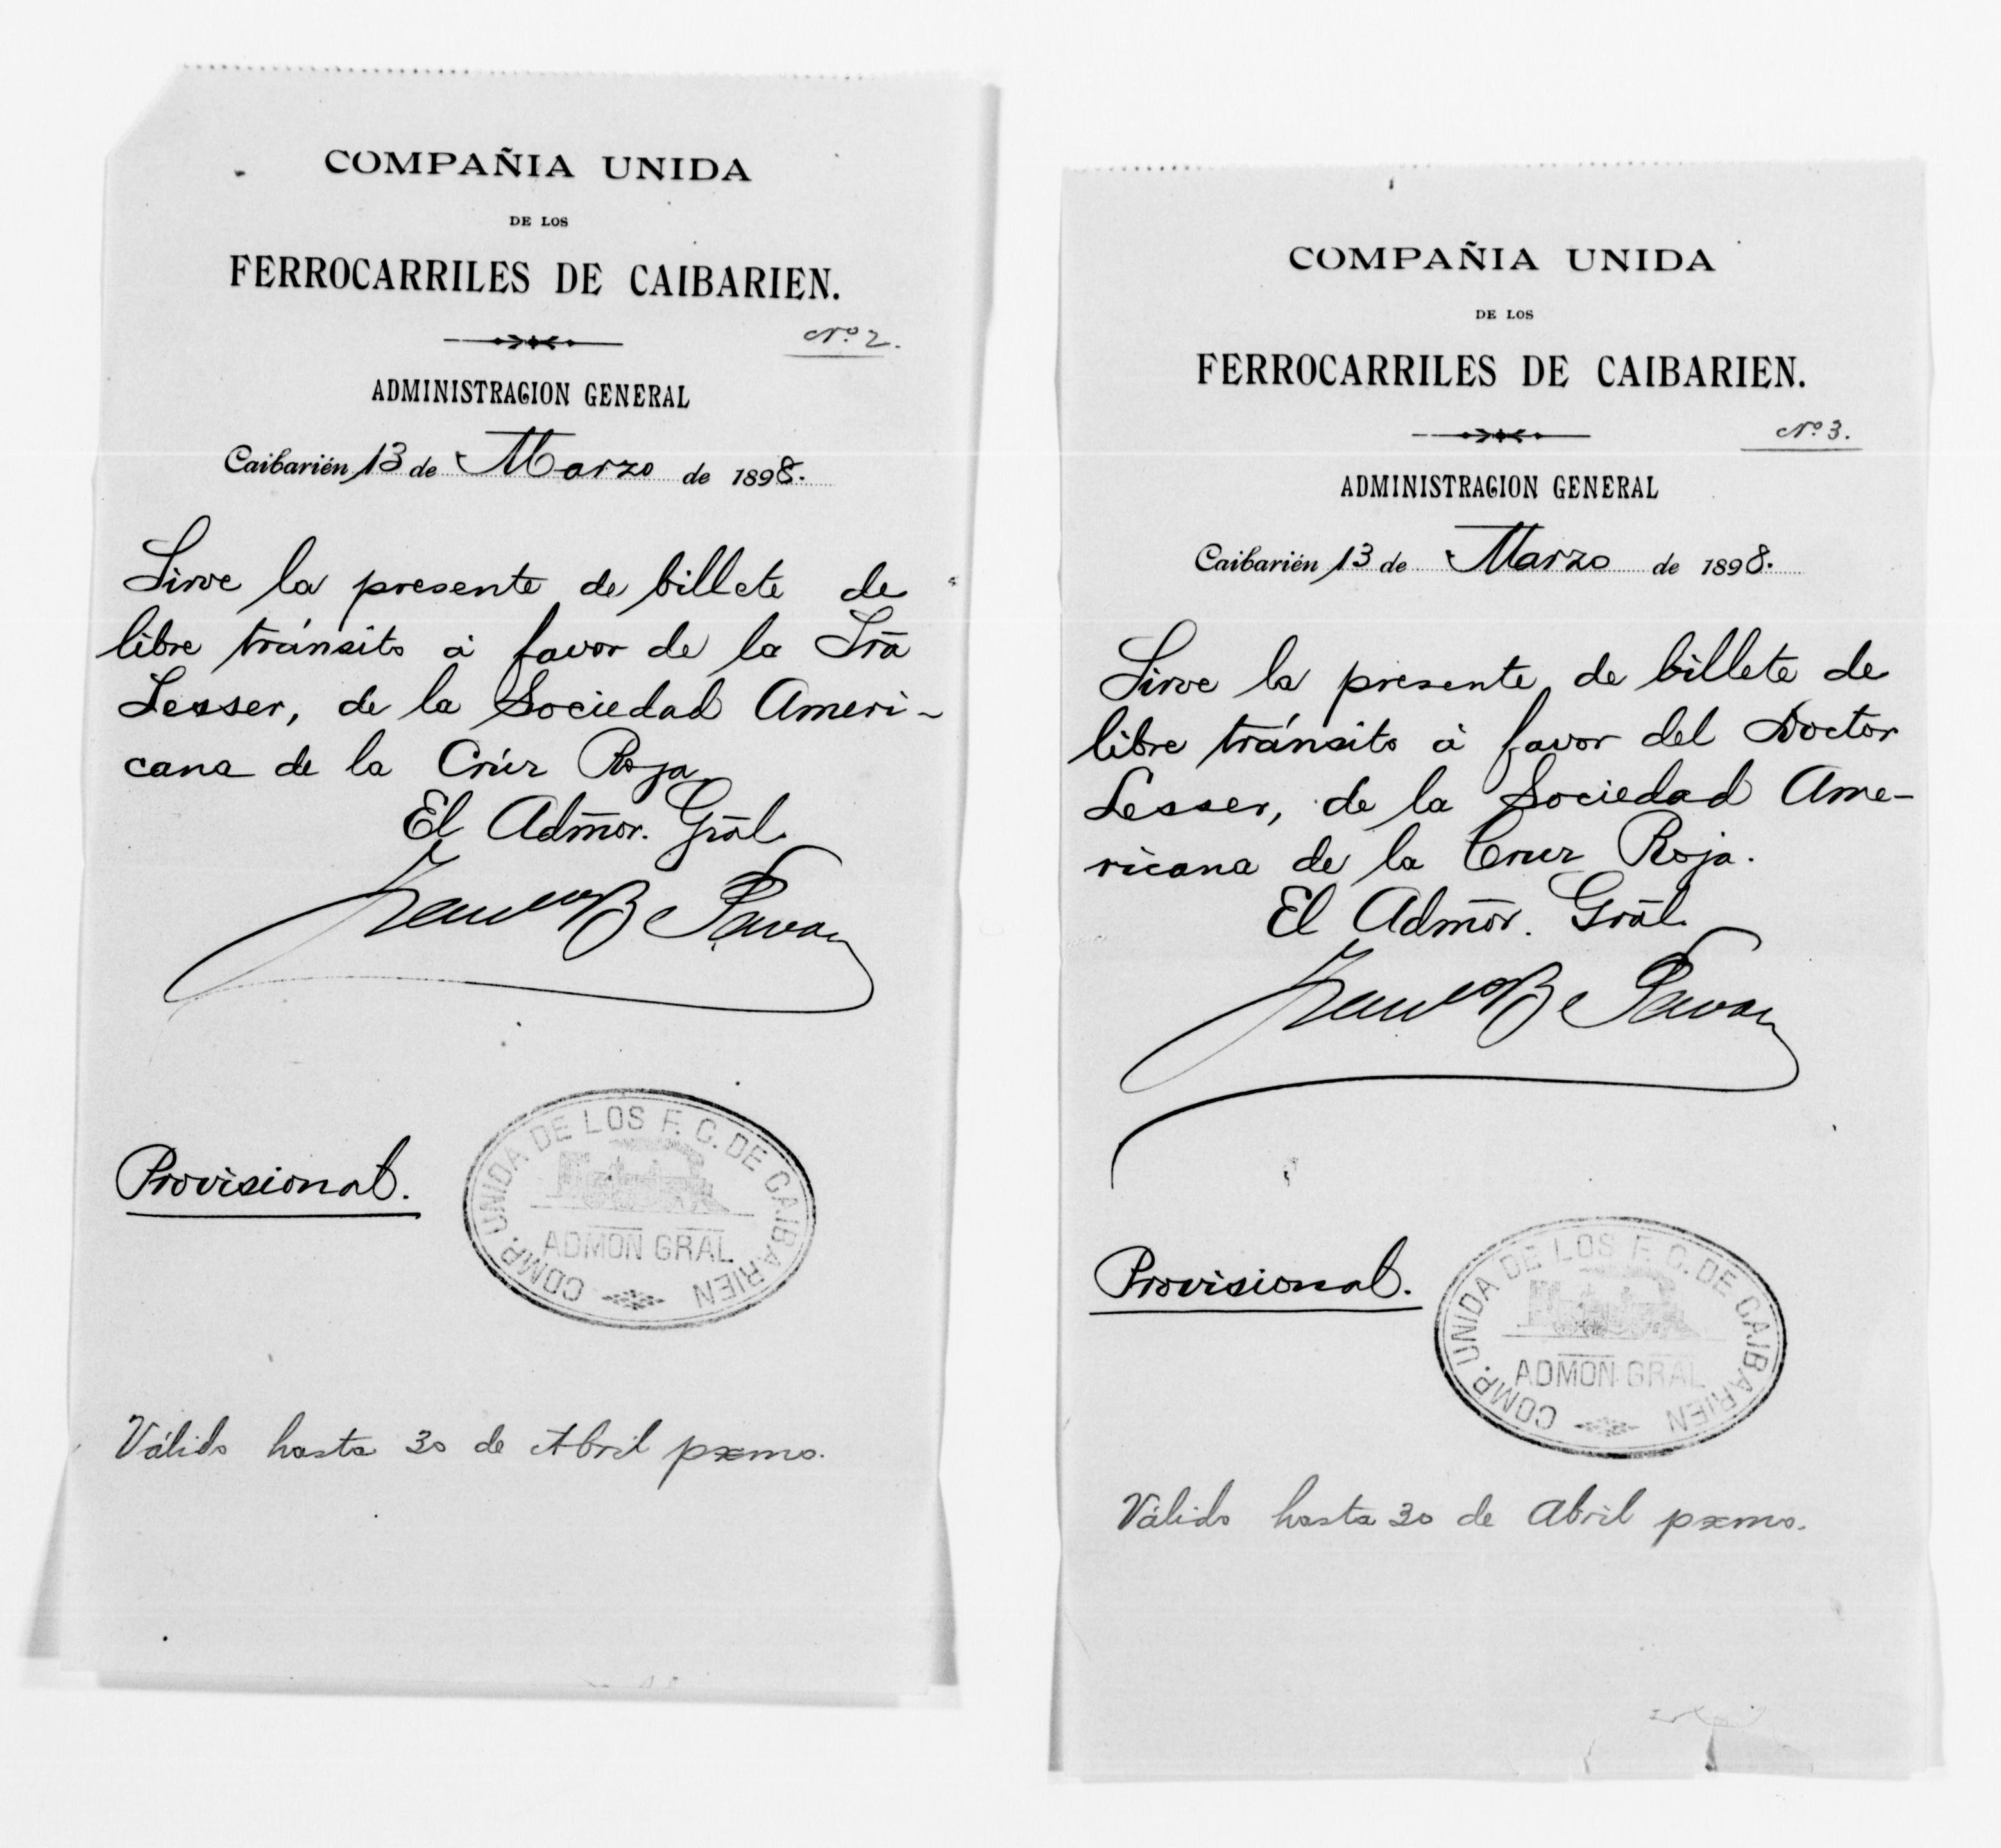 COMPAÑIA UNIDA
DE LOS
FERROCARRILES DE CAIBARIEN.
Nº 2.
ADMINISTRACION GENERAL
Caibarién 13 de Marzo de 1898.
Sirve la presente de billete de
libre tránsito á favor de la Srã
Lesser, de la Sociedad Ameri-
cana de la Crúz Roja
El Admõr. Grãl
Provisional.
COMP. UNIDA DE LOS F. C. DE CAIBARIEN
ADMON GRAL
Válido hasta 30 de Abril pxmo.
COMPAÑIA UNIDA
DE LOS
FERROCARRILES DE CAIBARIEN.
Nº 3.
ADMINISTRACION GENERAL
Caibarién 13 de Marzo de 1898.
Sirve la presente de billete de
libre tránsito á favor del Doctor
Lesser, de la Sociedad Ame-
ricana de la Cruz Roja.
El Admõr. Grãl
Provisional.
COMP. UNIDA DE LOS F. C. DE CAIBARIEN
ADMON GRAL
Válido hasta 30 de Abril pxmo.